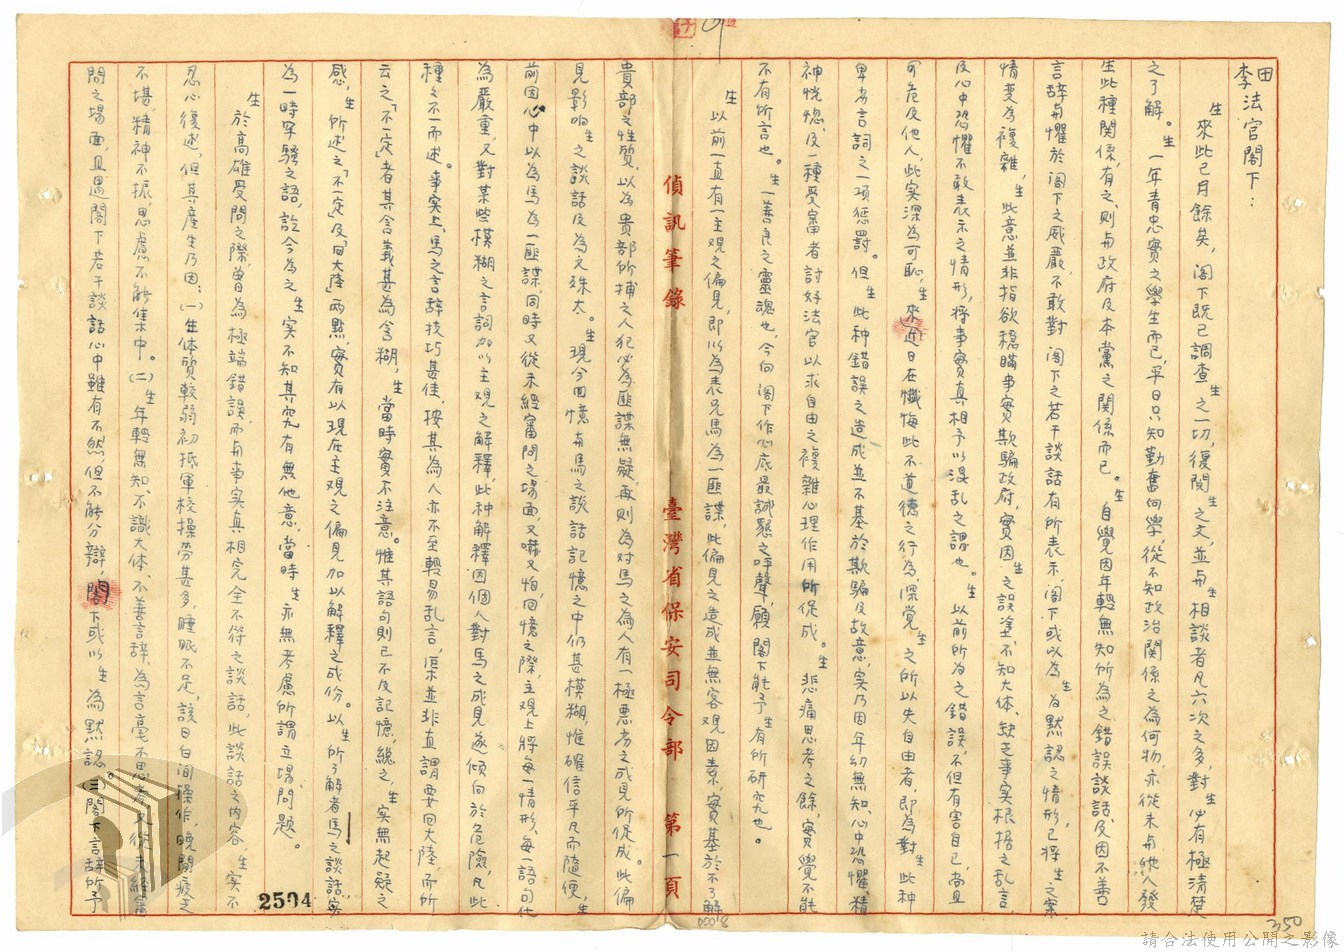 田
李法官閣下：
生來此已月餘矣，閣下既已調查生之一切，復閱生之文，並與生相談者凡六次之多，對生必有極清楚
之了解。生一年青忠實之學生而已，平日只知勤奮向學，從不知政治關係之為何物，亦從未與他人發
生此種關係，有之，則與政府及本黨之關係而已。生自覺因年輕無知所為之錯誤談話及因不善
言辞與懼於閣下之威嚴，不敢對閣下之若干談話有所表示，閣下或以為生為默認之情形，已將生之案
情變為複雜，生此意並非指欲穩瞞事實欺騙政府，實因生之誤塗、不知大体、缺乏事实根据之乱言
及心中恐懼不敢表示之情形，将事實真相予以混乱之謂也。生以前所為之錯誤，不但有害自己，尚且
可危及他人，此实深為可恥，生來近日在懺悔此不道德之行為，深覺生之所以失自由者，即為對生此种
卑劣言詞之一項懲罰。但生此种錯誤之造成並不基於欺騙及故意，实乃因年幼無知、心中恐懼、精
神恍惚、及一種受審者討好法官以求自由之複雜心理作用所促成。生悲痛思考之餘，實覺不能
不有所言也。生一善良之靈魂也，今向閣下作心底最誠懇之呼聲，願閣下能予生有所研究也。
生以前一直有一主观之偏見，即以為表兄馬為一匪諜，此偏見之造成並無客观因素，實基於不了解
貴部之性質，以為貴部所捕之人犯必為匪諜無疑，再則為对馬之為人有一極惡劣之成見所促成。此偏
見影响生之談話及為文殊大。生現今回憶與馬之談話記憶之中仍甚模糊，惟確信平凡而隨便，生
前因心中以為馬為一匪諜，同時又從未經審問之場面，又嚇又怕，回憶之際，主观上将每一情形、每一語句估
為嚴重，又對某些模糊之言詞加以主观之解釋，此种解釋因個人對馬之成見遂傾向於危險，凡此
種々不一而述。事实上，馬之言辞技巧甚佳，按其為人亦不至輕易乱言，原並非直謂要回大陸，而所
云之「不一定」者其含義甚為含糊，生當時實不注意。惟其語句則已不及記憶，總之生实無起疑之
感，生所述之「不一定」及「回大陸」兩點實有以現在主观之偏見加以解釋之成份。以生所了解者馬之談話实
為一時牢騷之語，訖今為之生实不知其究有無他意，當時生亦無考慮所謂立場問題。
生於高雄受問之際曾為極端錯誤而與事实真相完全不符之談話，此談話之內容，生实不
忍心復述，但其產生乃因：(一)生体質較弱初抵軍校操勞甚多，睡眠不足，該日白間操作，晚間疲乏
不堪，精神不振，思慮不能集中。(二)生年輕無知、不識大体、不善言辞，為言毫不思考又從未經審
問之場面，且遇閣下若干談話心中雖有不然，但不能分辯，閣下或以生為默認。(三)閣下言辞所予
偵訊筆錄　臺灣省保安司令部　第一頁
2504
00018
350
請合法使用公開之影像